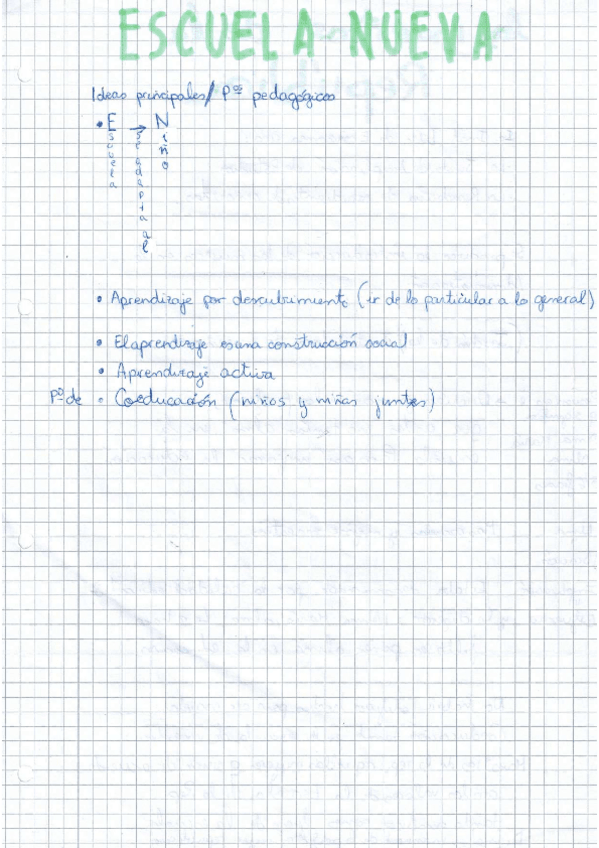 ESCUELA NUEVA
Ideas principales/ Pºs pedagógicos
• Escuela → se adapta al Niño
• Aprendizaje por descubrimiento (ir de lo particular a lo general)
• El aprendizaje es una construcción social
• Aprendizaje activa
Pº de • Coeducación (niños y niñas juntos)